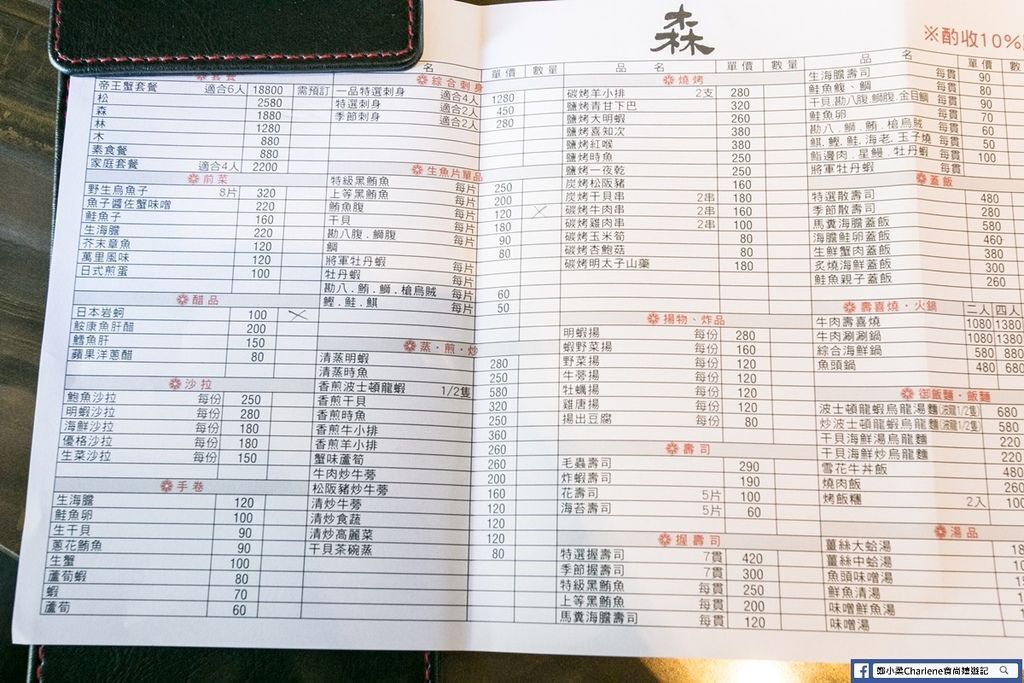 森
※酌收10%
套餐
帝王蟹套餐 適合6人 18800 需預訂
松 2580
森 1880
林 1280
木 880
素食餐 880
家庭套餐 適合4人 2200
前菜
野生烏魚子 8片 320
魚子醬佐蟹味噌 220
鮭魚子 160
生海膽 220
芥末章魚 120
萬里風味 120
日式煎蛋 100
醋品
日本岩蚵 100
鮟康魚肝醋 200
鱈魚肝 150
蘋果洋蔥醋 80
沙拉
鮑魚沙拉 每份 250
明蝦沙拉 每份 280
海鮮沙拉 每份 180
優格沙拉 每份 180
生菜沙拉 每份 150
手卷
生海膽 120
鮭魚卵 100
生干貝 90
蔥花鮪魚 90
生蟹 100
蘆筍蝦 80
蝦 70
蘆筍 60
單價 數量
綜合刺身
一品特選刺身 適合4人 1280
特選刺身 適合2人 450
季節刺身 適合2人 280
生魚片單品
特級黑鮪魚 每片 250
上等黑鮪魚 每片 200
鮪魚腹 每片 120
干貝 每片 180
勘八腹.鰤腹 每片 90
鯛 80
將軍牡丹蝦 每片
牡丹蝦
勘八.鮪.鰤.槍烏賊 每片 60
鰹.鮭.鯕 每片 50
蒸.煎.炒
清蒸明蝦 280
清蒸時魚 250
香煎波士頓龍蝦 1/2隻 580
香煎干貝 320
香煎時魚 250
香煎牛小排 360
香煎羊小排 260
蟹味蘆筍 260
牛肉炒牛蒡 200
松阪豬炒牛蒡 160
清炒牛蒡 120
清炒食蔬 120
清炒高麗菜 120
干貝茶碗蒸 80
品 名 單價 數量
燒烤
碳烤羊小排 2支 280
鹽烤青甘下巴 320
鹽烤大明蝦 260
鹽烤喜知次 380
鹽烤紅喉 380
鹽烤時魚 250
鹽烤一夜乾 250
炭烤松阪豬 160
炭烤干貝串 2串 180
碳烤牛肉串 2串 160
碳烤雞肉串 2串 100
碳烤玉米筍 80
碳烤杏鮑菇 80
碳烤明太子山藥 180
揚物、炸品
明蝦揚 每份 280
蝦野菜揚 每份 160
野菜揚 每份 120
牛蒡揚 每份 120
牡蠣揚 每份 120
雞唐揚 每份 120
揚出豆腐 每份 80
壽司
毛蟲壽司 290
炸蝦壽司 190
花壽司 5片 100
海苔壽司 5片 60
握壽司
特選握壽司 7貫 420
季節握壽司 7貫 300
特級黑鮪魚 每貫 250
上等黑鮪魚 每貫 200
馬糞海膽壽司 每貫 120
品 名 單價 數
生海膽壽司 每貫 90
鮭魚腹、鯛 每貫 80
干貝.勘八腹.鰤腹.金目鯛 每貫 90
鮭魚卵 每貫 70
勘八.鰤.鮪.槍烏賊 每貫 60
鯕.鰹.鮭.海老.玉子燒 每貫 50
鮨邊肉.星鰻.牡丹蝦 每貫 100
將軍牡丹蝦 每貫
蓋飯
特選散壽司 480
季節散壽司 280
馬糞海膽蓋飯 580
海膽鮭卵蓋飯 460
生鮮蟹肉蓋飯 380
炙燒海鮮蓋飯 300
鮭魚親子蓋飯 260
壽喜燒・火鍋 二人 四人
牛肉壽喜燒 1080 1380
牛肉涮涮鍋 1080 1380
綜合海鮮鍋 580 880
魚頭鍋 480 680
御飯麵・飯麵
波士頓龍蝦烏龍湯麵(波龍1/2隻) 680
炒波士頓龍蝦烏龍麵(波龍1/2隻) 580
干貝海鮮湯烏龍麵 220
干貝海鮮炒烏龍麵 220
雪花牛丼飯 480
燒肉飯 260
烤飯糰 2入 100
湯品
薑絲大蛤湯
薑絲中蛤湯
魚頭味噌湯
鮮魚清湯
味噌鮮魚湯
味噌湯
鄭小柔Charlene食尚嬉遊記